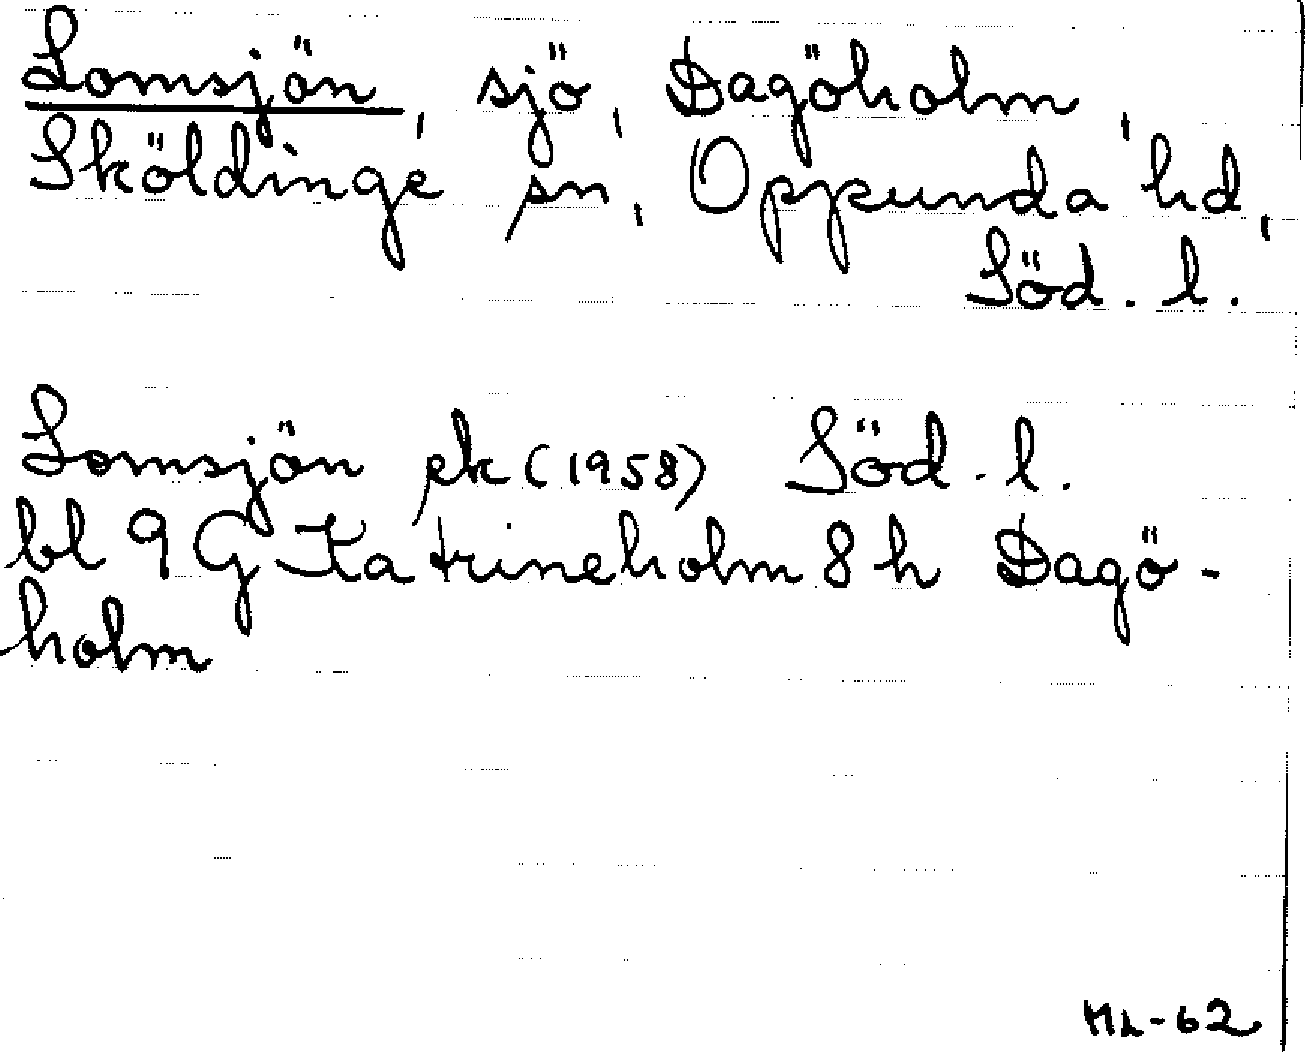 Lomsjön, sjö, Dagöholm,
Sköldinge sn, Oppunda hd,
Söd. l.
Lomsjön ek (1958) Söd. l.
bl 9 G Katrineholm 8 h Dagö-
holm